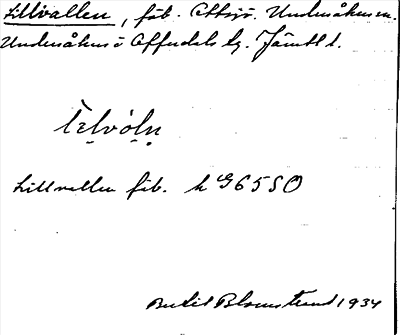 Lillvallen, fäb. Ottsjö. Undersåkers sn.
Undersåkers o Offerdals tg. Jämtl l.
lelvóln
Lillvallen fäb. k G65SO
Bertil Blomstrand 1934